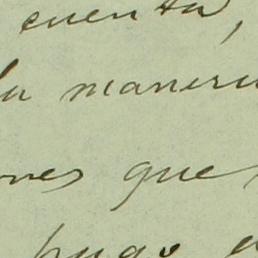 cuenta,
la manera
nes que
pago